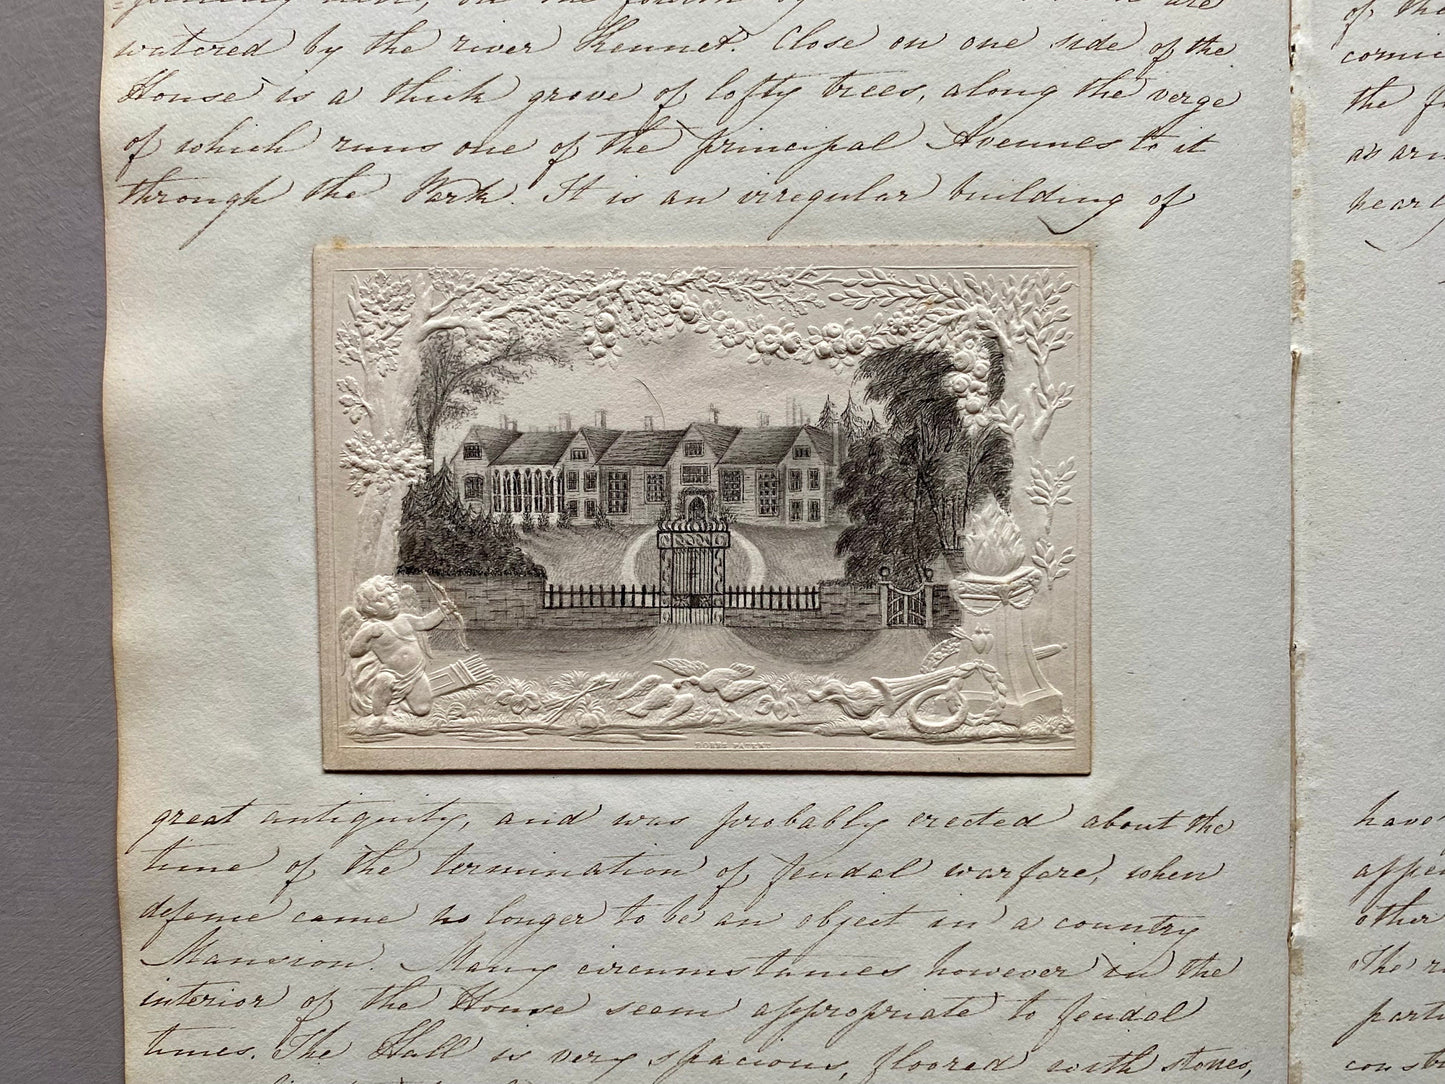 watered by the river Kennet. Close on one side of the
House is a thick grove of lofty trees, along the verge
of which runs one of the principal Avenues to it
through the Park. It is an irregular building of
DOBBS PATENT
great antiquity, and was probably erected about the
time of the termination of feudal warfare, when
defense came no longer to be an object in a country
Mansion. Many circumstances however in the
interior of the House seem appropriate to feudal
times. The Hall is very spacious, floored with stones,
of the
the
as
have
other
The